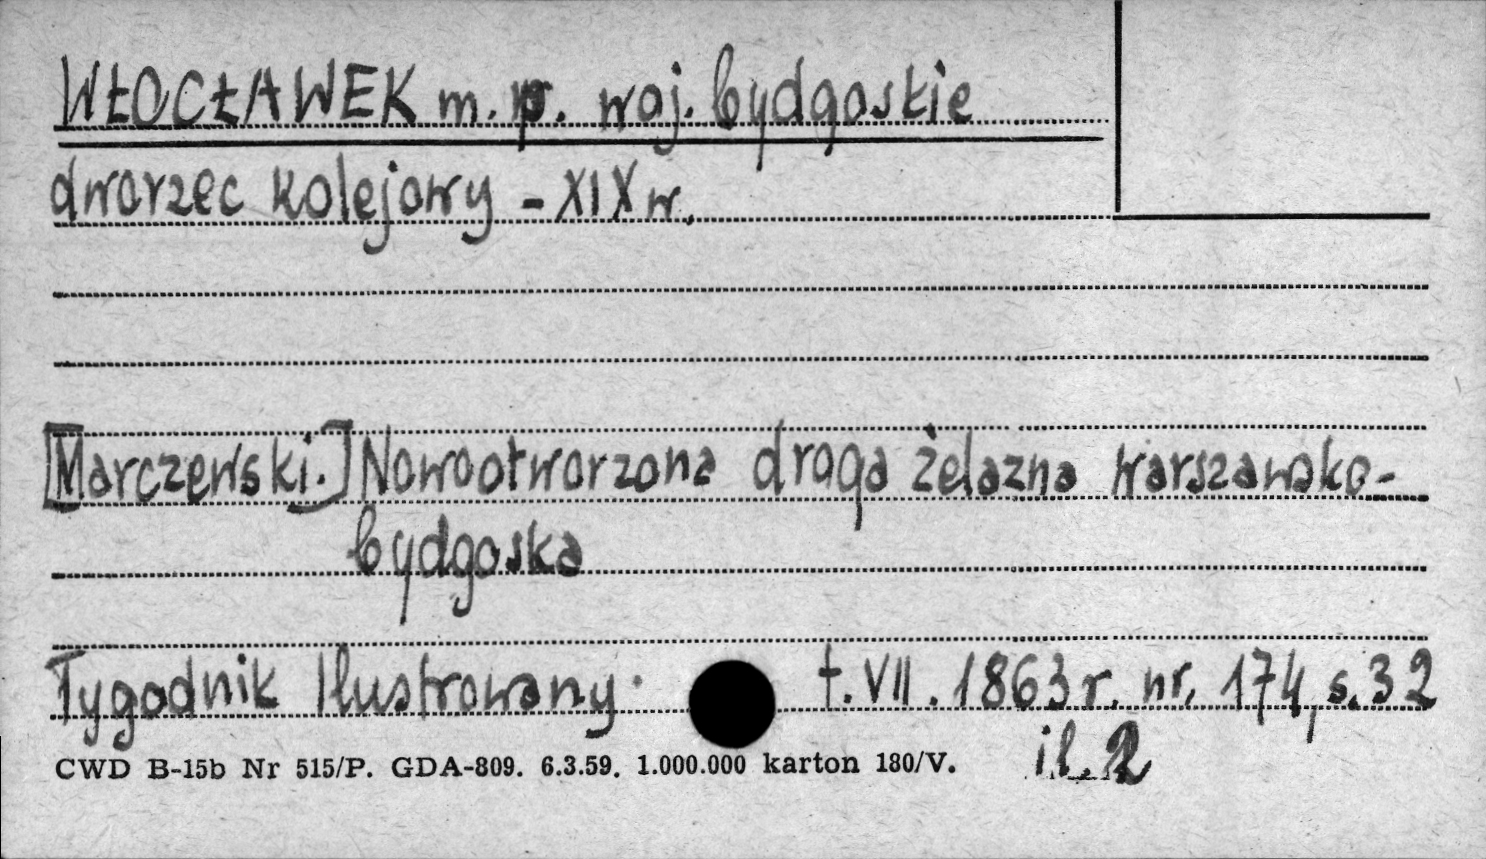 WŁOCŁAWEK m. p. woj. bydgoskie
dworzec kolejowy - XIX w.
[Marczewski.] Nowootworzona droga żelazna warszawsko-
bydgoska
Tygodnik Ilustrowany. t. VII. 1863 r. nr. 174, s. 32
il. 2
CWD B-15b Nr 515/P. GDA-809. 6.3.59. 1.000.000 karton 180/V.